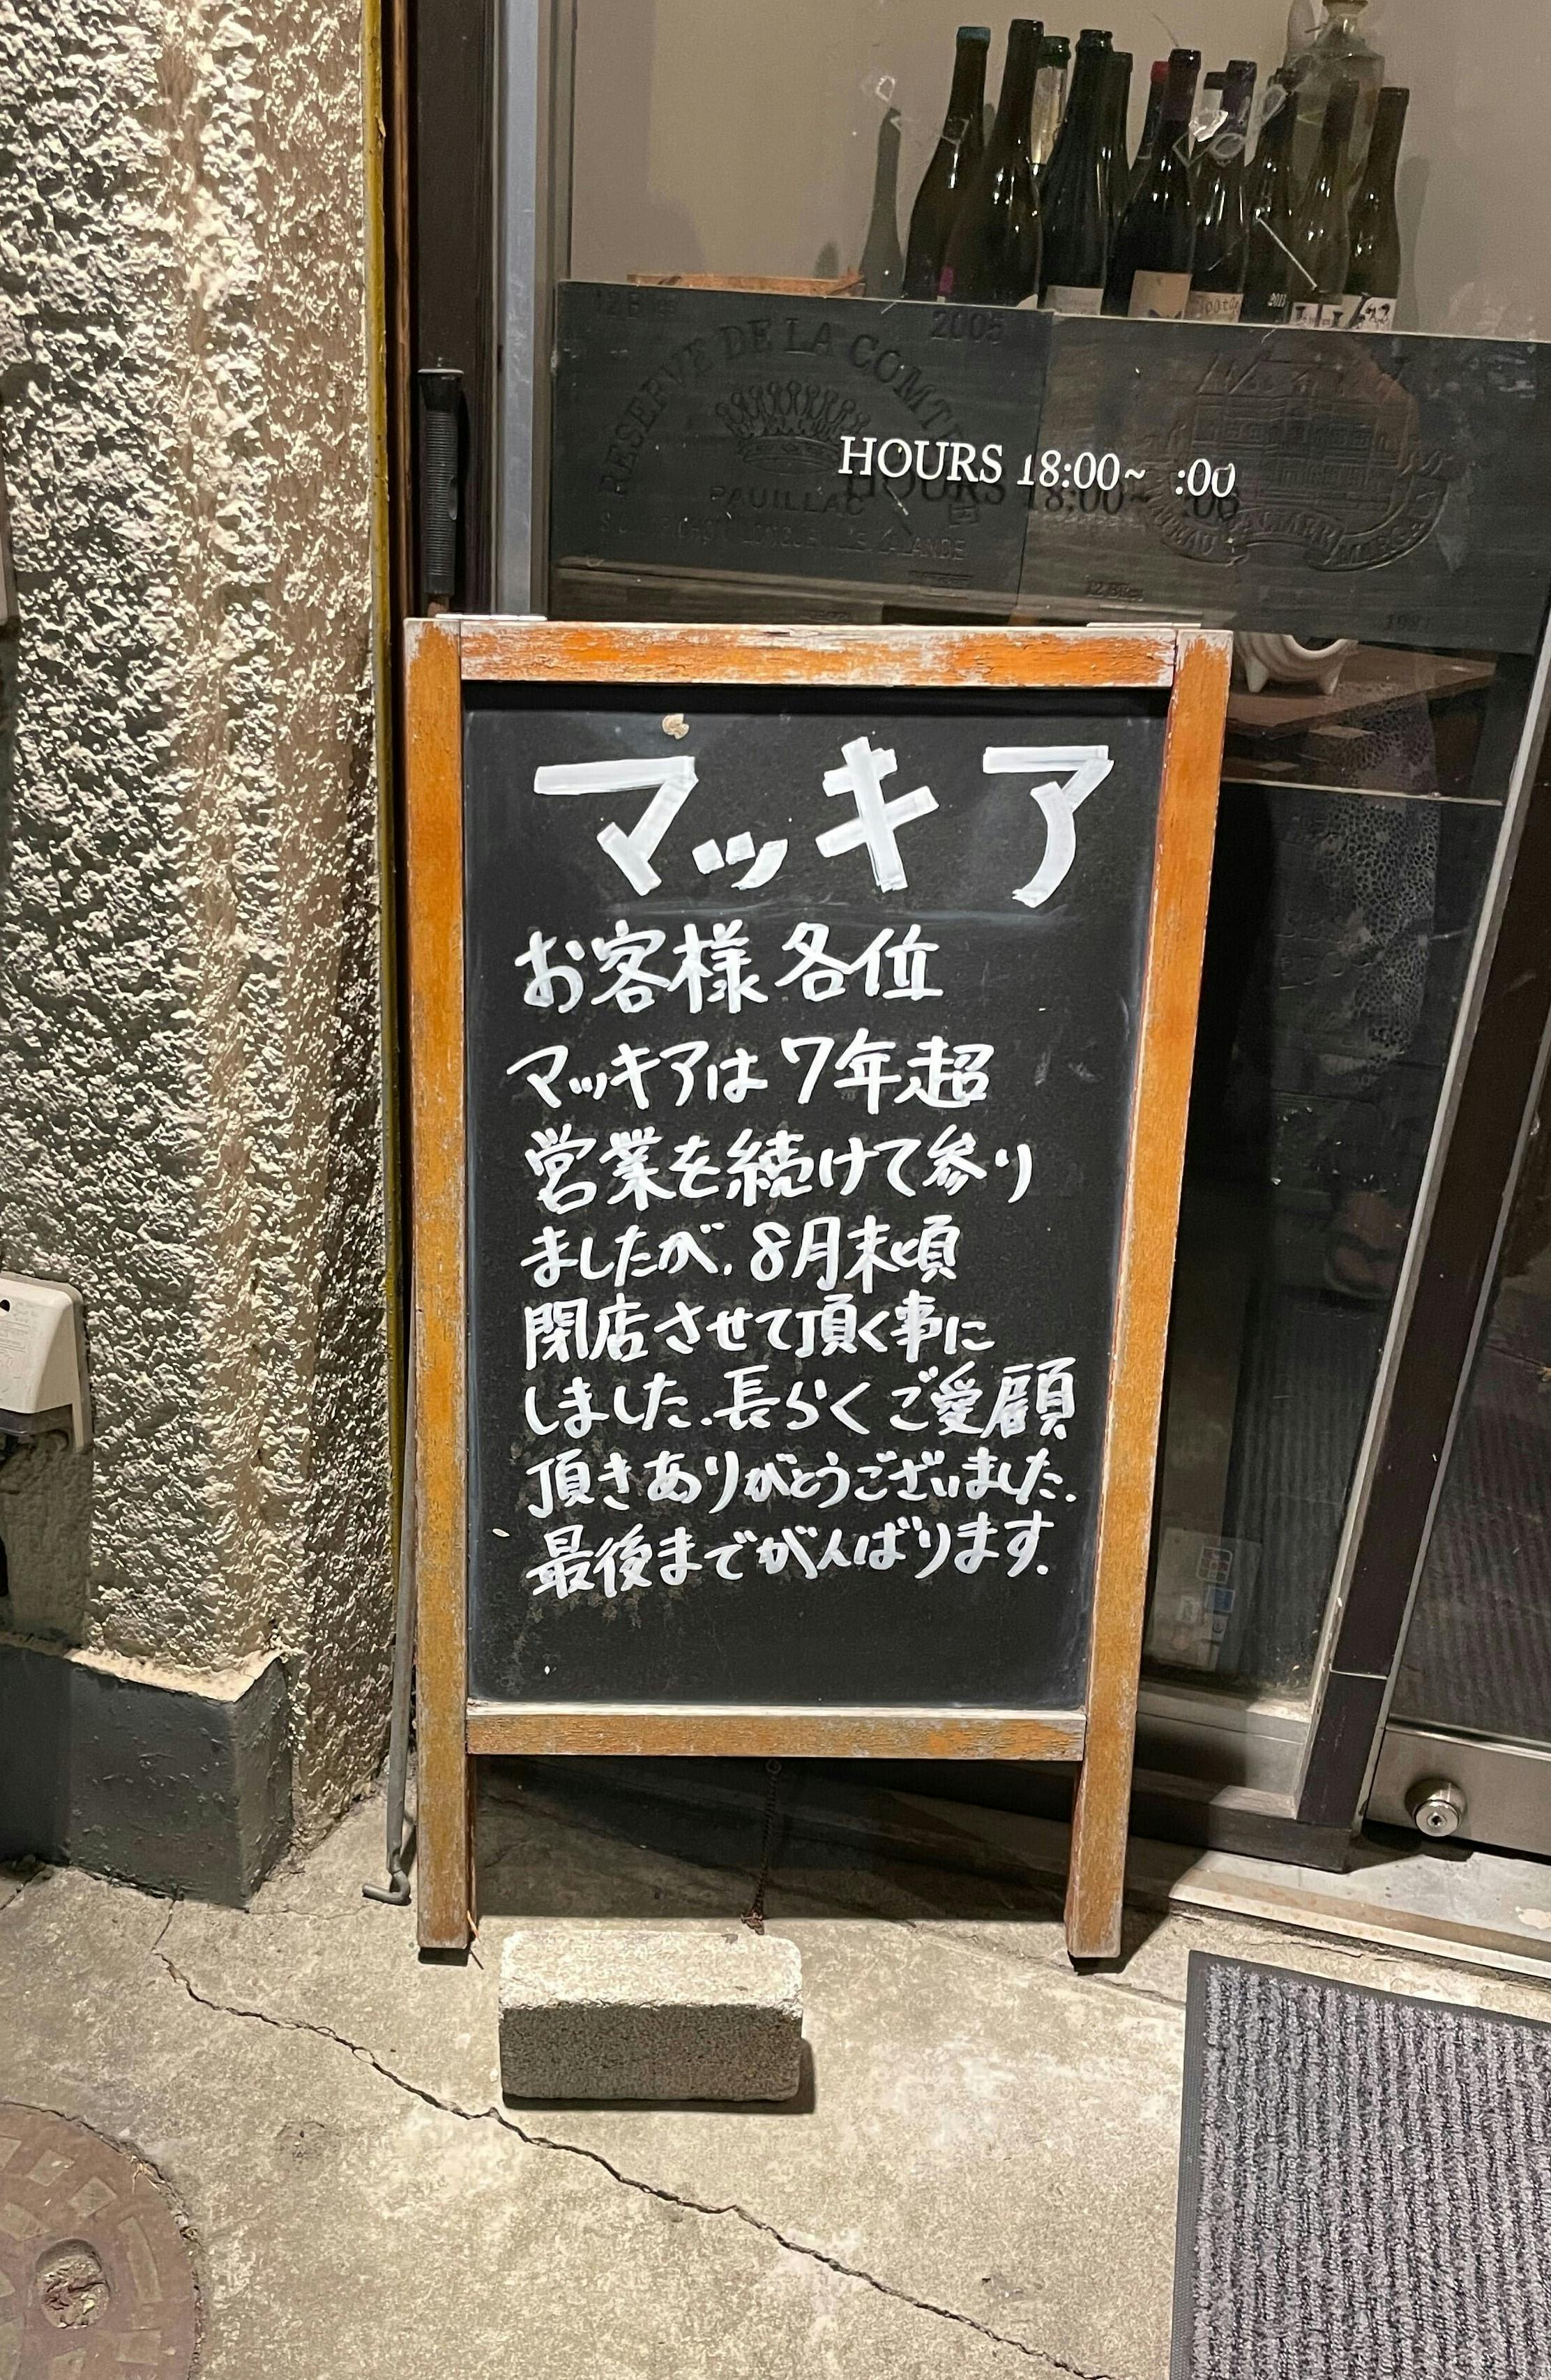 2005
RESERVE DE LA COMTE
PAUILLAC
HOURS 18:00~ :00
マッキア
お客様各位
マッキアは7年超
営業を続けて参り
ましたが、8月末頃
閉店させて頂く事に
しました.長らくご愛顧
頂きありがとうございました.
最後までがんばります.